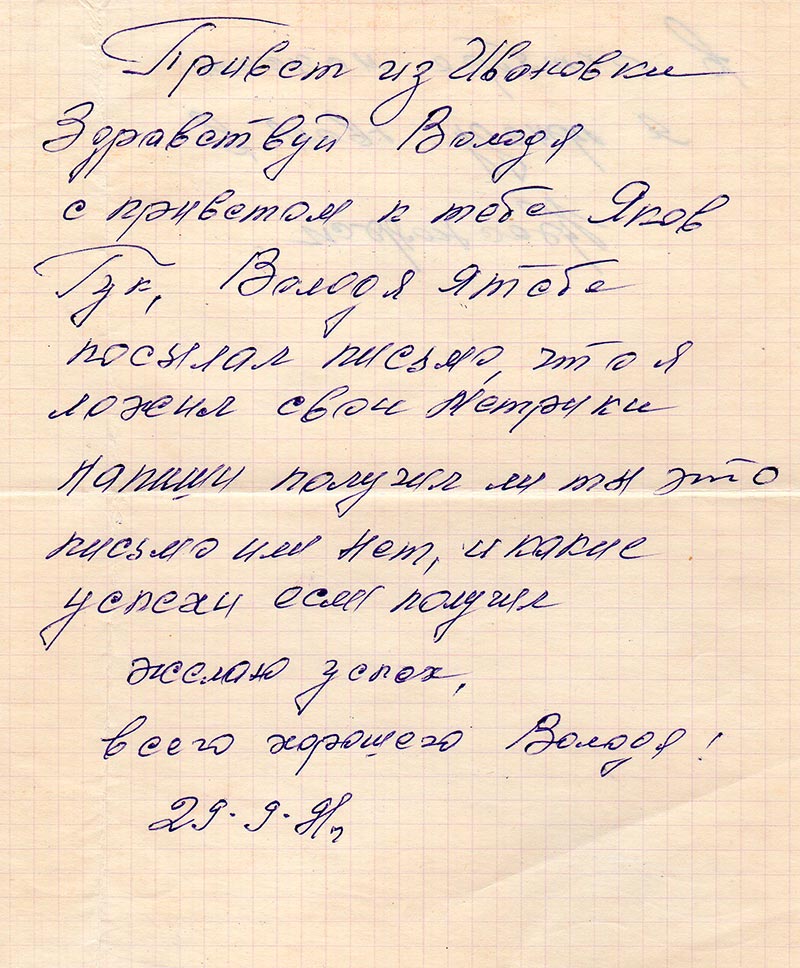 Привет из Ивановки
Здравствуй Володя
с приветом к тебе Яков
Гук, Володя я тебе
посылал письмо, что я
ложил свои Метрики
напиши получил ли ты это
письмо или нет, и какие
успехи если получил
желаю успех,
всего хорошего Володя!
29.9.91г